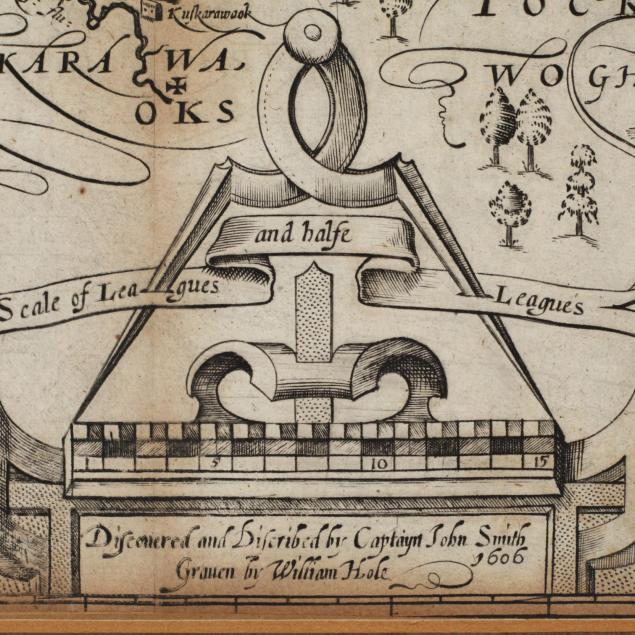 Kuskarawaok
flu:
TOCK
KARAWA
OKS
WOGH
and halfe
Scale of Leagues
Leagues
1 5 10 15
Discouered and Discribed by Captayn John Smith
1606
Grauen by William Hole